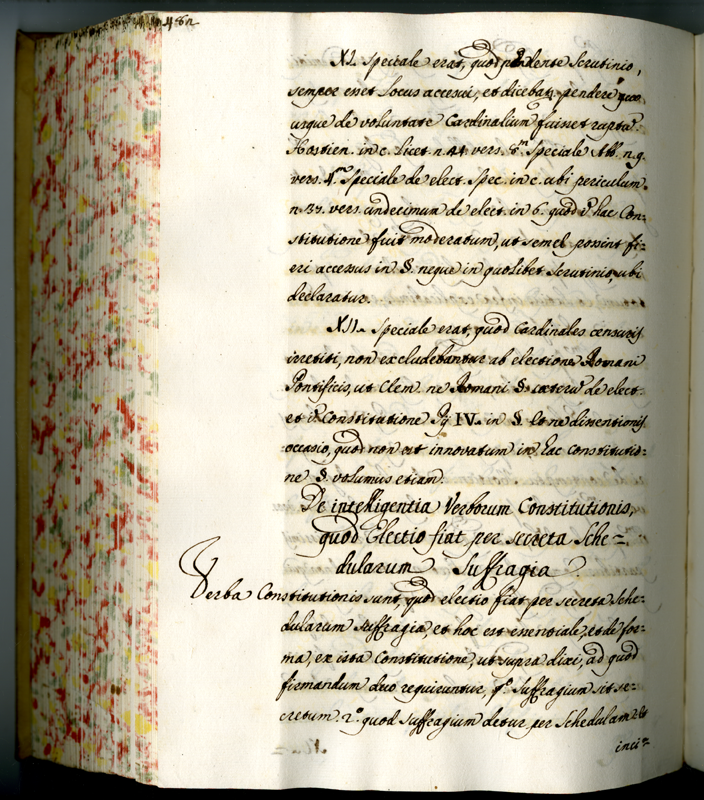 XI. Speciale erat, quod pendente Scrutinio,
semper esset Locus accessui, et dicebat pendere quo
usque de voluntate Cardinalium fuisset
Hostien. in c. licet n. 44 vers. 8.m Speciale Abb. n. 9.
vers. 4.m Speciale de elect. Spec. in c. ubi periculum.
n. 37. vers. undecimum de elect. in 6. quod hac Con=
stitutione fuit moderatum, ut semel possint fi=
eri accessus in §. neque in quolibet Scrutinio, ubi
declaratur.
XII. Speciale erat, quod Cardinales censuris
irretiti, non excludebantur ab electione Romani
Pontificis, ut Clem. ne Romani §. cæteru de elect.
et Constitutione Pij IV. in §. dissentionis
occasio, quod non est innovatum in hac constitutio=
ne §. volumus etiam.
De intelligentia Verborum Constitutionis,
quod Electio fiat per secreta Sche=
dularum Suffragia.
Verba Constitutionis sunt, quod electio fiat per secreta Sche=
dularum suffragia, et hoc est essentiale, et de for=
ma, ex ista Constitutione, ut supra dixi, ad quod
firmandum duo requiruntur, p.o Suffragium sit se=
cretum. 2.o quod Suffragium detur per Schedulam
inci=